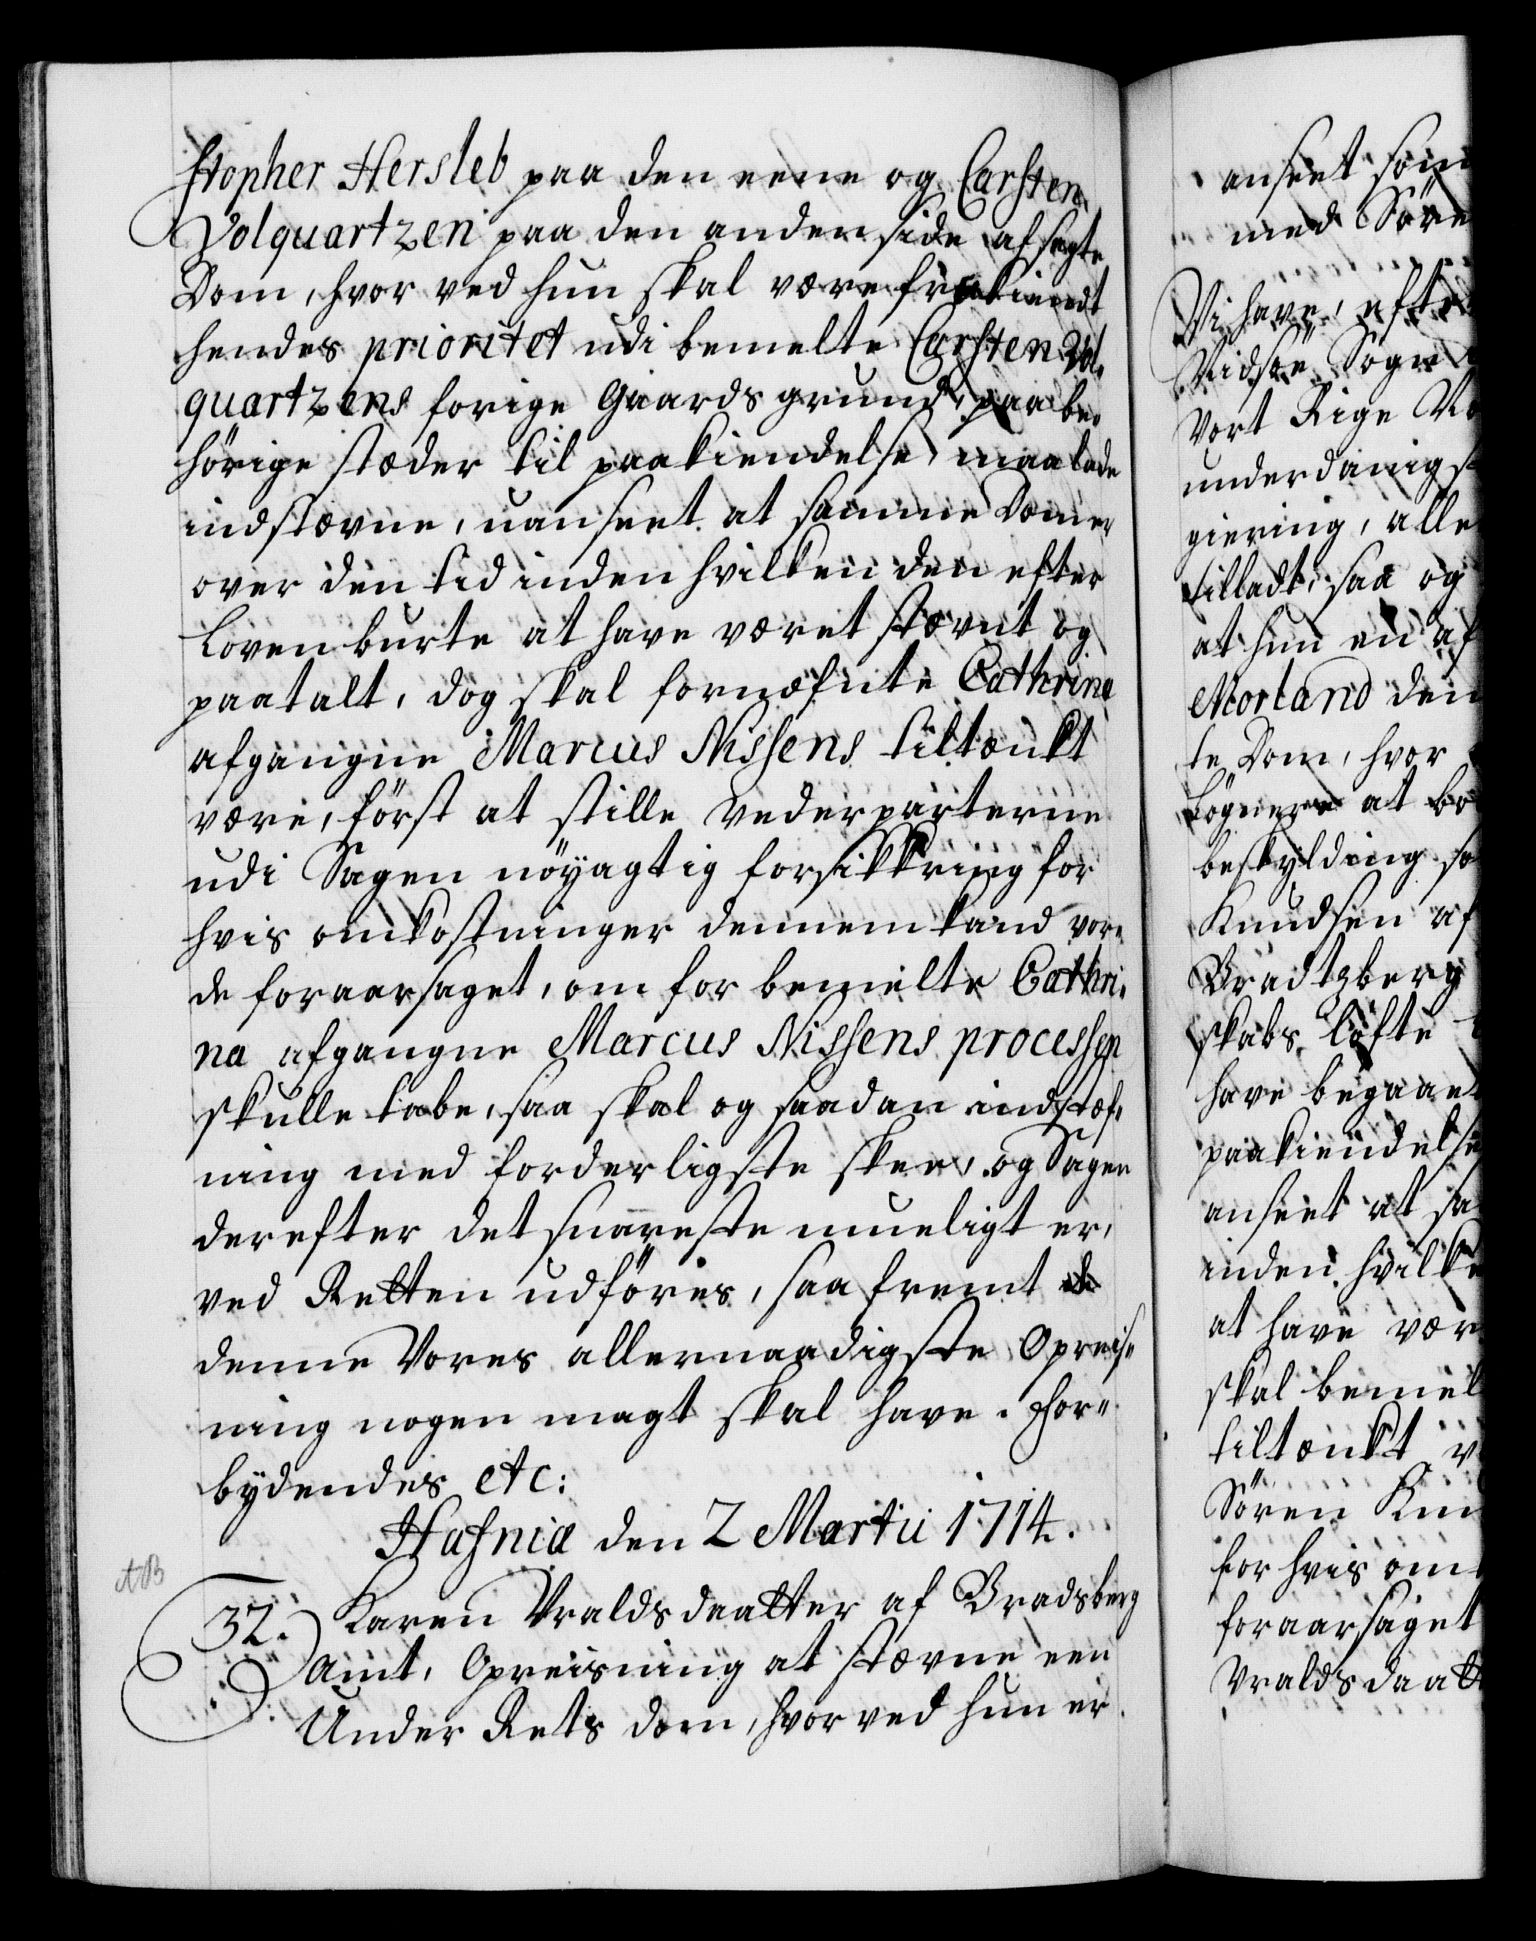 stopher Hersleb paa den eene og Carsten
Volquartzen paa den anden side afsagte
Dom, hvor ved hun skal være frakiendt
hendes prioritet udi bemelte Carsten Vol,
quartzens forige Gaards grund, paa be,
hörige stæder til paakiendelse maa lade
indstævne, uanseet at samme Dom er
over den tid inden hvilken den efter
Loven burte at have været stævnt og
paatalt, dog skal fornæfnte Cathrina
afgangne Marcus Nissens tiltænkt
være, först at stille vederparterne
udi Sagen nöyagtig forsikkring for
hvis omkostninger dennem kand vor,
de foraarsaget, om for bemelte Cathri,
na afgangne Marcus Nissens processen
skulle tabe, saa skal og saadan indstæf,
ning med forderligste skee, og Sagen
derefter det snareste mueligt er,
ved Retten udföres, saa fremt
denne Vores allernaadigste Opreis,,
ning nogen magt skal have. For,,
bydendes etc:
Hafniæ den 2 Martii 1714.
AB
32. Karen Vraldsdaatter af Bradsberg
Amt, Opreisning at stævne een
Under Rets dom, hvorved hun er
anseet som
med Söre
Vi have, efte
Sogn
Vort Rige No
underdanigs
giering, alle
tilladt, saa og
at hun en af
Morland den
te Dom, hvor
Lögnere at bö
beskylding so
Knudsen af
Bradtzberg
skabs löfte
have begaae
paakiendelse
anseet at sa
inden hvilke
at have vær
skal bemel
tiltænkt v
Sören Knu
for hvis om
foraarsaget
Vraldsdaatt